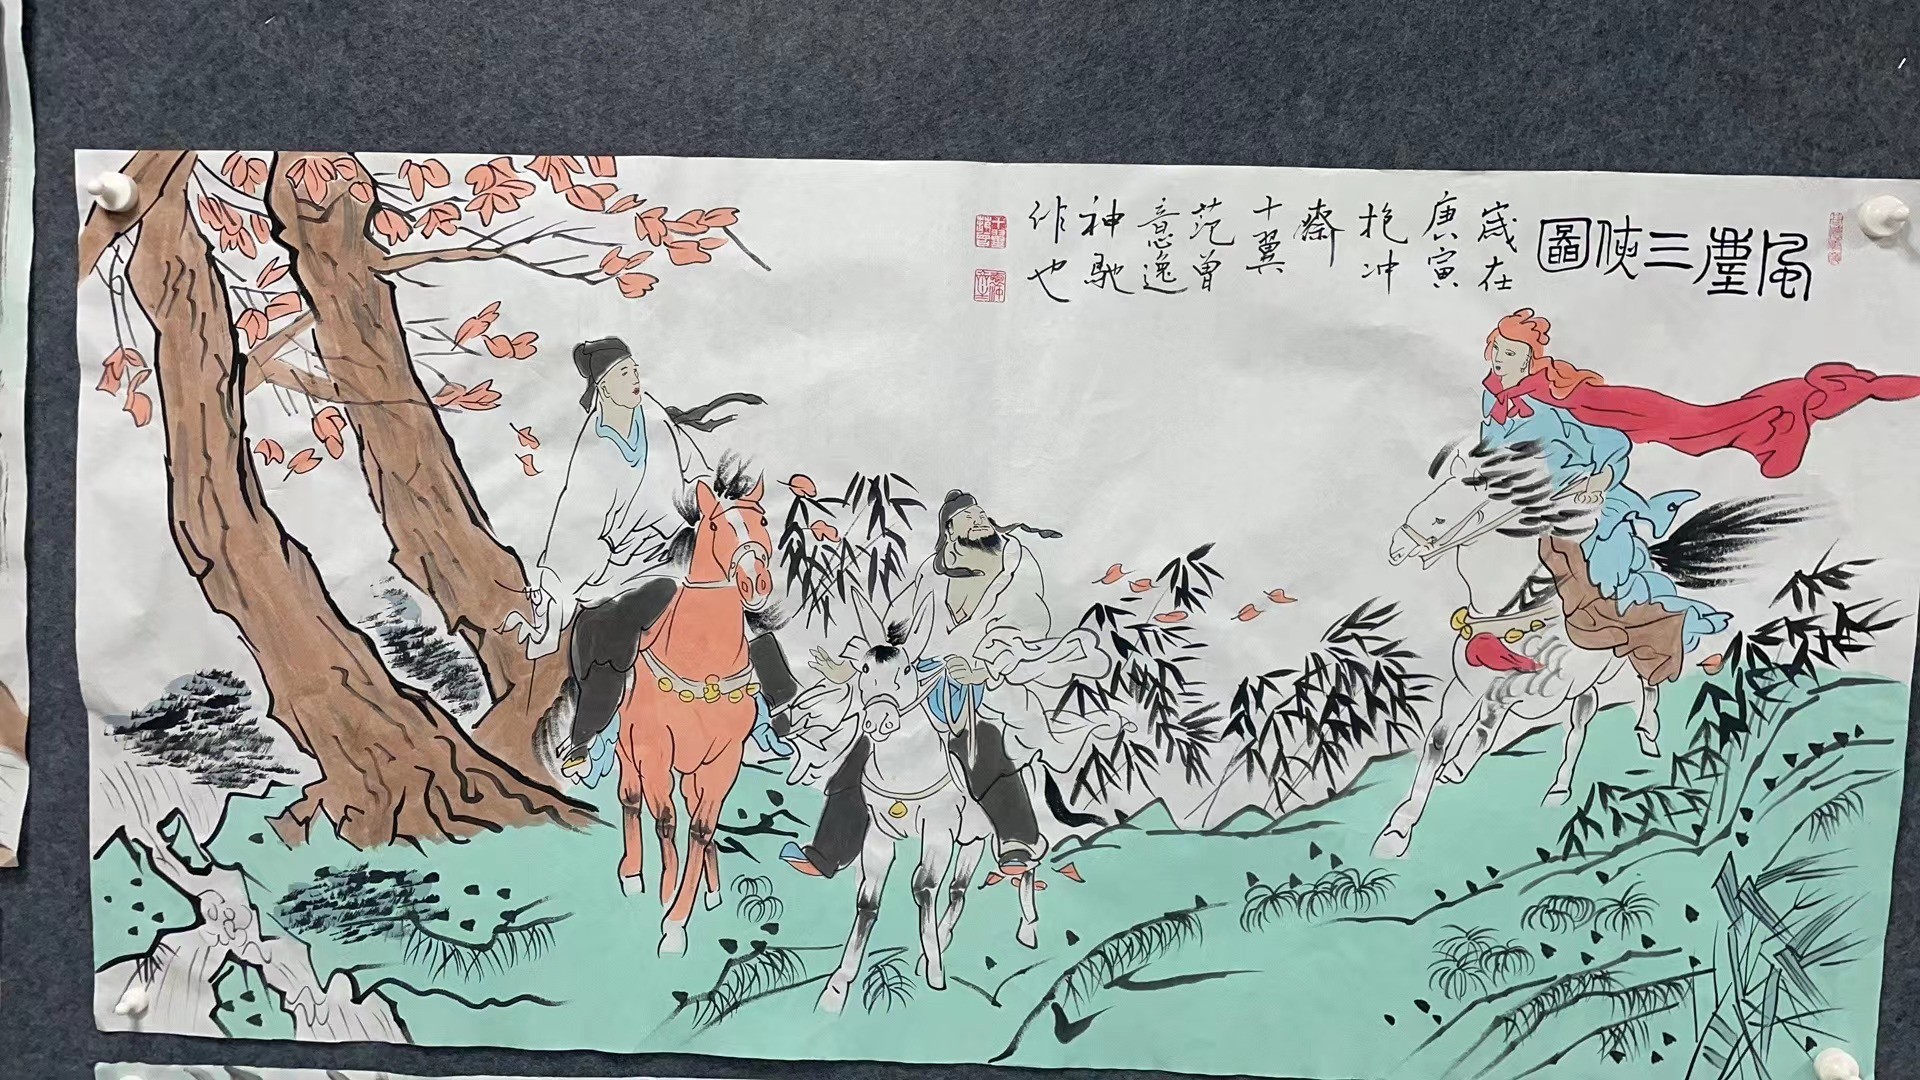 風塵三俠圖
歲在
庚寅
抱冲
齋
十翼
范曾
意逸
神馳
作也